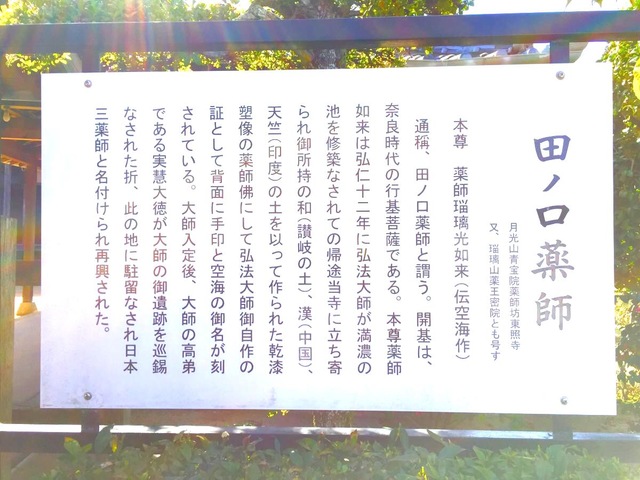 田ノ口薬師
月光山青宝院薬師坊東照寺
又、瑠璃山薬王密院とも号す
本尊　薬師瑠璃光如来（伝空海作）
通稱、田ノ口薬師と謂う。開基は、
奈良時代の行基菩薩である。本尊薬師
如来は弘仁十二年に弘法大師が満濃の
池を修築なされての帰途当寺に立ち寄
られ御所持の和（讃岐の土）、漢（中国）、
天竺（印度）の土を以って作られた乾漆
塑像の薬師佛にして弘法大師御自作の
証として背面に手印と空海の御名が刻
されている。大師入定後、大師の高弟
である実慧大徳が大師の御遺跡を巡錫
なされた折、此の地に駐留なされ日本
三薬師と名付けられ再興された。